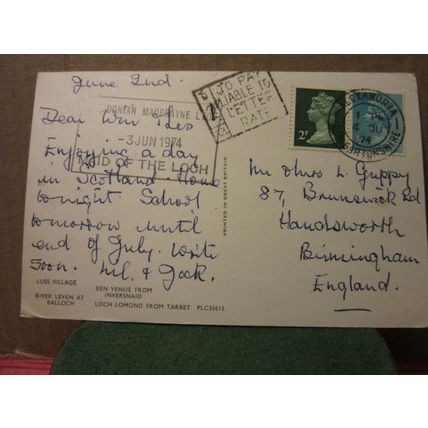 June 2nd.
Dear Win & Les
Enjoying a day
in Scotland. Home
tonight School
tomorrow until
end of July. Write
Soon. Mel. & Jack.
LUSS VILLAGE
BEN VENUE FROM
INVERSNAID
RIVER LEVEN AT
BALLOCH
LOCH LOMOND FROM TARBET PLC35615
CALEDONIAN MACBRAYNE
3 JUN 1974
MAID OF THE LOCH
PRINTED IN GREAT BRITAIN
TO PAY
LIABLE TO
LETTER
RATE
2P
ALEXANDRIA
1 - PM
4 JU
74
DUNBARTONSHIRE
Mr Chas L. Guppy
87, Brunswick Rd
Handsworth
Birmingham
England.